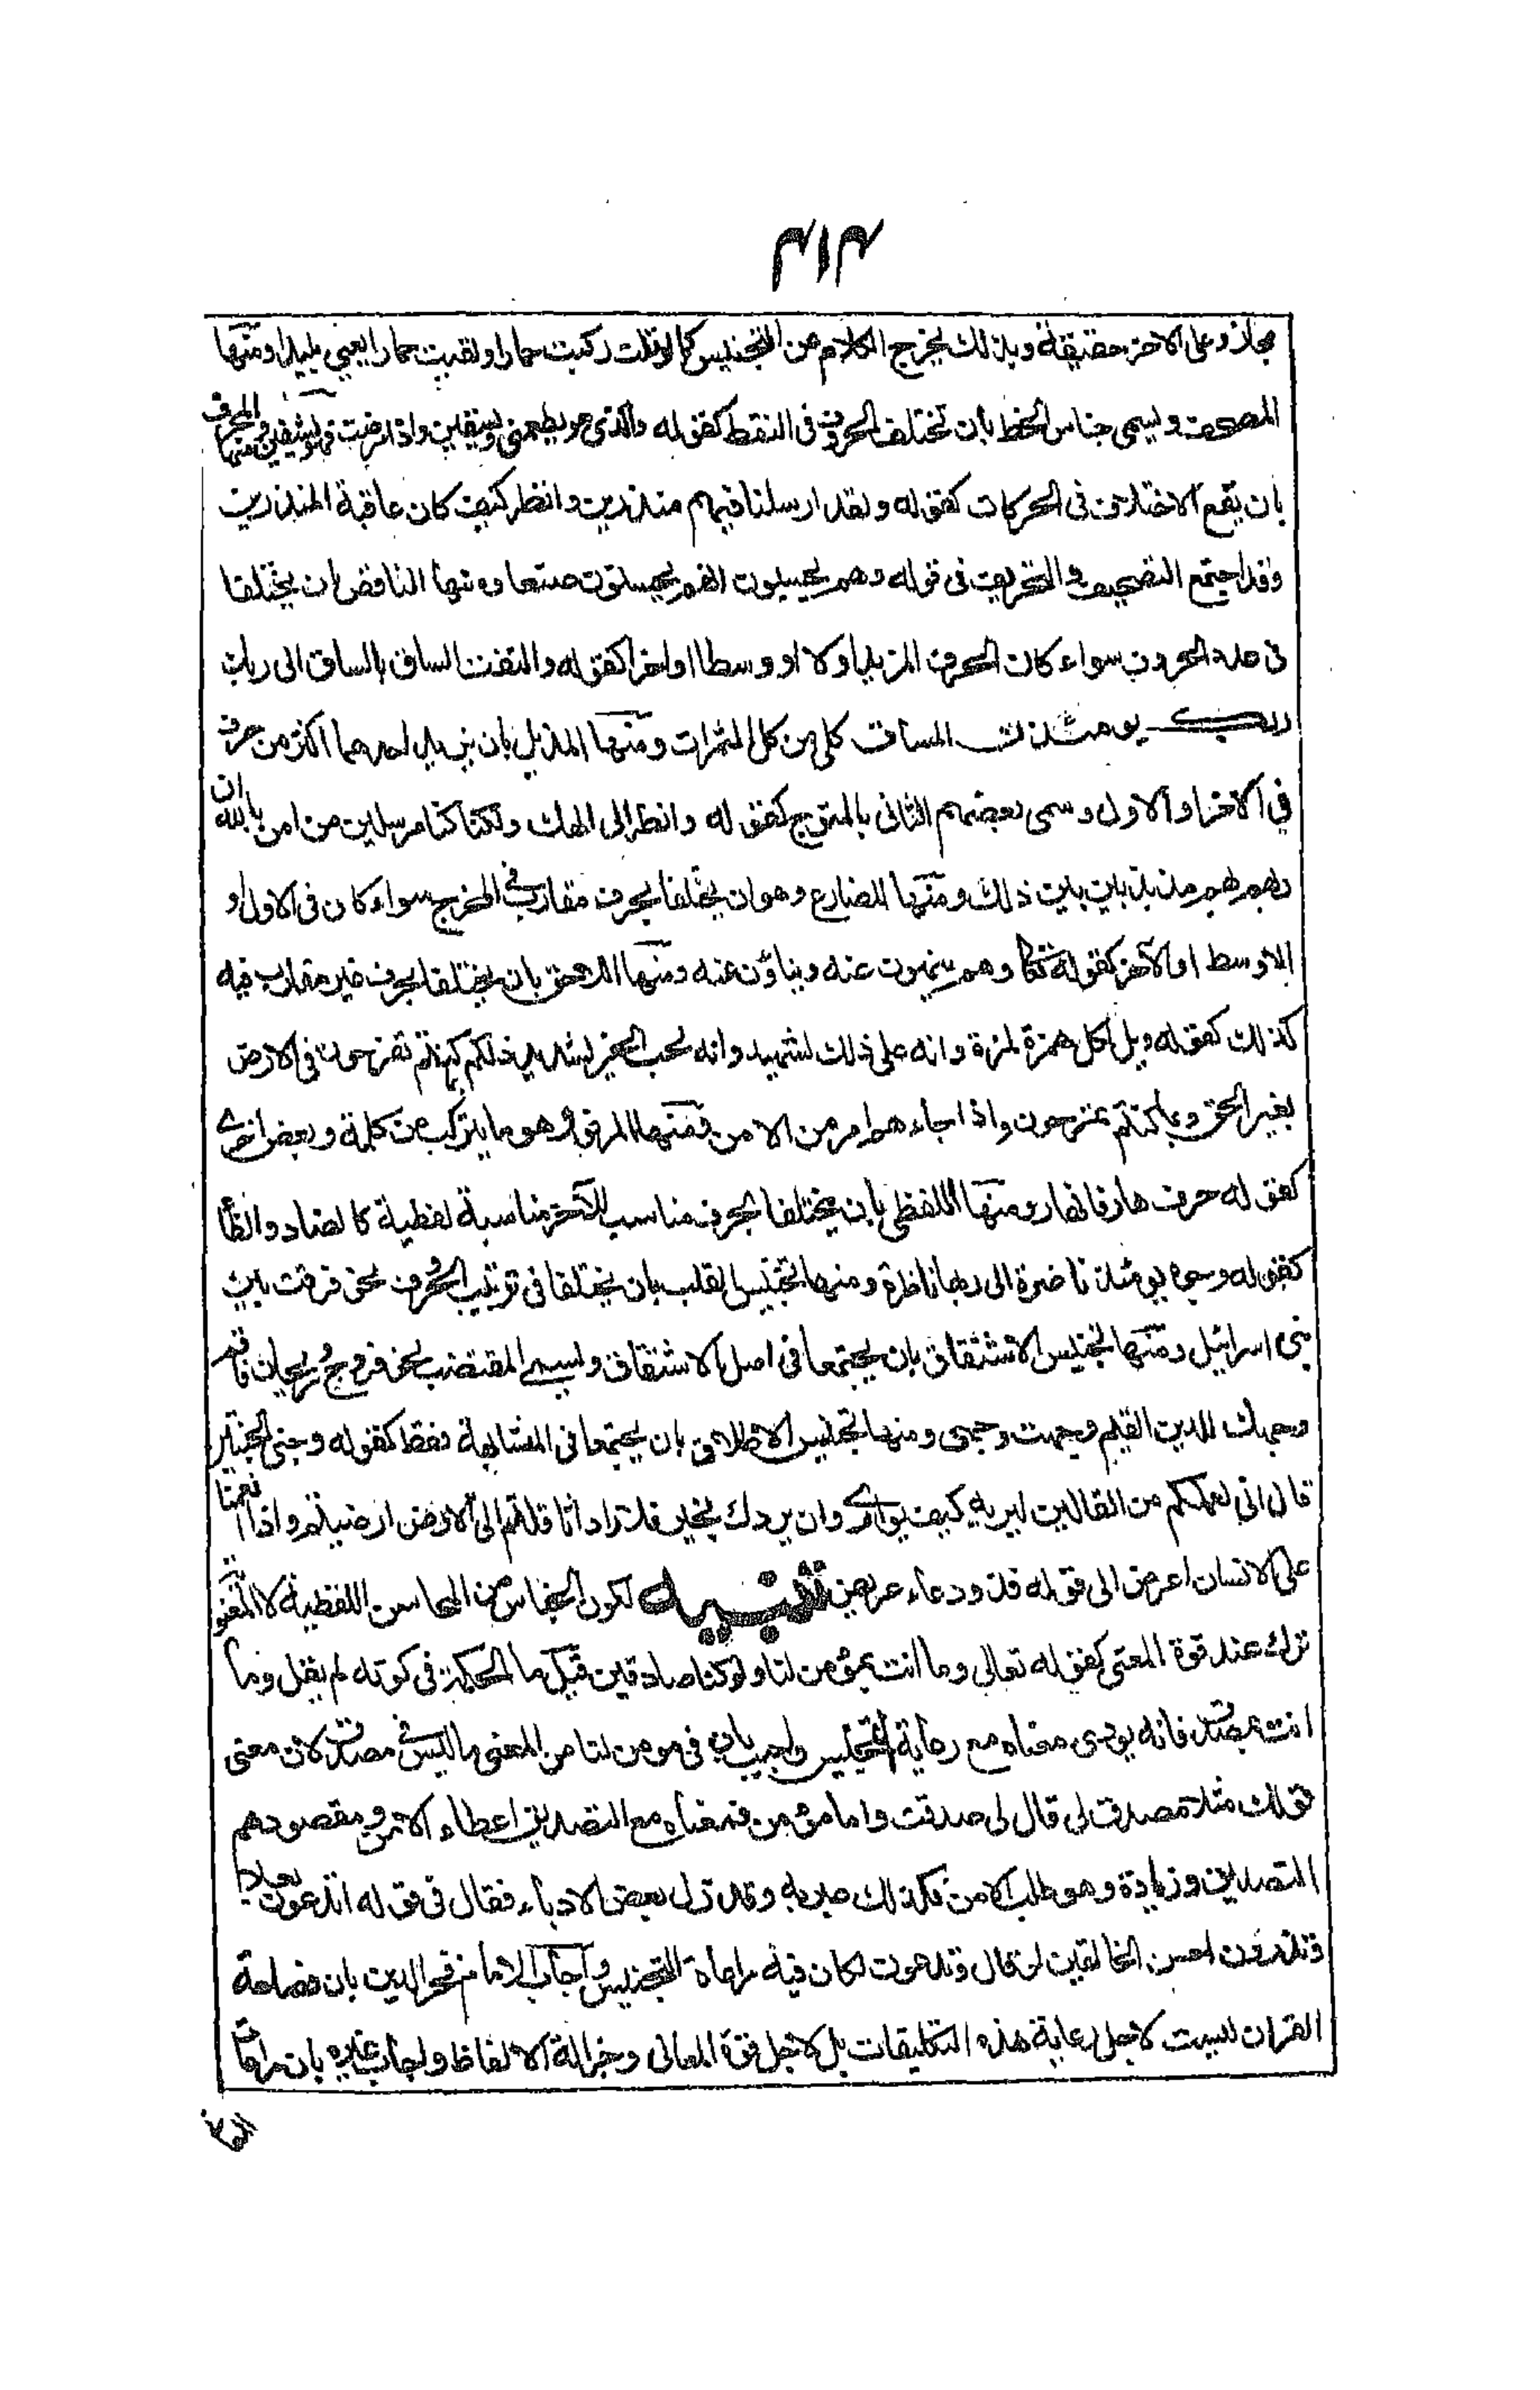 ٣١٣
مجاز وعلى الاخر حقيقة وبذلك يخرج الكلام عن التجنيس كما لو قلت ركبت حمارا ولقيت حمارا يعني بليدا ومنها
المصحف ويسمى جناس الخط بأن تختلف الحروف فى النقط كقوله والذى هو يطعمني ويسقين واذا مرضت فهو يشفين ومنها المحرف
بان يقع الاختلاف فى الحركات كقوله ولقد ارسلنا فيهم منذرين وانظر كيف كان عاقبة المنذرين
وقد اجتمع التصحيف والتحريف فى قوله وهم يحسبون انهم يحسنون صنعا ومنها الناقص بان يختلفا
فى عدد الحروف سواء كان الحرف المزيد اولا او وسطا او اخرا كقوله والتفت الساق بالساق الى ربك
يومئذ المساق كلى من كل الثمرات ومنها المذيل بان يزيد احدهما اكثر من حرف
في الاخر او الاول وسمى بعضهم الثانى بالمتوج كقوله وانظر الى الهك ولكنا كنا مرسلين من امن بالله ان
ربهم بهم مذبذبين بين ذلك ومنها المضارع وهو ان يختلفا بحرف مقارب في المخرج سواء كان فى الاول او
الاوسط او الآخر كقوله تعالى وهم ينهون عنه وينأون عنه ومنها اللاحق بان يختلفا بحرف غير مقارب فيه
كذلك كقوله ويل لكل همزة لمزة وانه على ذلك لشهيد وانه لحب الخير لشديد ذلكم بما كنتم تفرحون فى الارض
بغير الحق وبما كنتم تمرحون واذا جاءهم امر من الامن ومنها المرفو وهو ما يتركب من كلمة وبعض اخرى
كقوله جرف هار فانهار ومنها اللفظى بان يختلفا بحرف مناسب للآخر مناسبة لفظية كالضاد والظا
كقوله وجوه يومئذ ناضرة الى ربها ناظرة ومنها تجنيس القلب بان يختلفا فى ترتيب الحروف نحو فرقت بين
بنى اسرائيل ومنها تجنيس الاشتقاق بان يجتمعا فى اصل الاشتقاق ويسمى المقتضب نحو فروح وريحان فاقم
وجهك للدين القيم وجهت وجهى ومنها تجنيس الاطلاق بان يجتمعا فى المشابهة فقط كقوله وجنى الجنتين
قال انى لعملكم من القالين ليريه كيف يوارى وان يردك بخير فلا راد اثاقلتم الى الارض ارضيتم واذا انعمنا
على الانسان اعرض الى قوله فذو دعاء عريض تنبيه لكون الجناس من المحاسن اللفظية لا المعنوية
ترك عند قوة المعنى كقوله تعالى وما انت بمؤمن لنا ولو كنا صادقين قيل ما الحكمة فى كونه لم يقل وما
انت بمصدق فانه يؤدى معناه مع رعاية التجنيس واجيب بان فى مومن لنا من المعنى ما ليس في مصدق لان معنى
قولك مثلا مصدق لى قال لى صدقت واما مؤمن فمعناه مع التصديق اعطاء الامن ومقصودهم
التصديق وزيادة وهو طلب الامن فلذلك عبر به وقد زل بعض الادباء فقال فى قوله اتدعون بعلا
وتذرون احسن الخالقين لو قال وتدعون لكان فيه مراعاة التجنيس واجاب الامام فخر الدين بان فصاحة
القران ليست لاجل رعاية هذه التكليفات بل لاجل قوة المعانى وجزالة الالفاظ واجاب غيره بان مراعاة